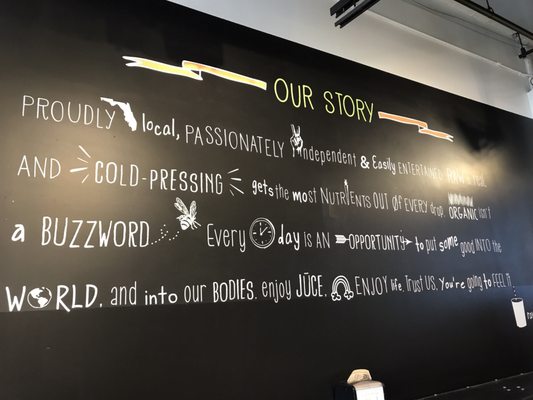 OUR STORY
PROUDLY local, PASSIONATELY independent & Easily ENTERTAINED.
AND COLD-PRESSING gets the most NUTRIENTS OUT OF EVERY drop. ORGANIC isn't
a BUZZWORD. Every day is AN OPPORTUNITY to put some good INTO the
WORLD. and into our BODIES. enjoy JŪCE. ENJOY life. Trust US. You're going to FEEL it.